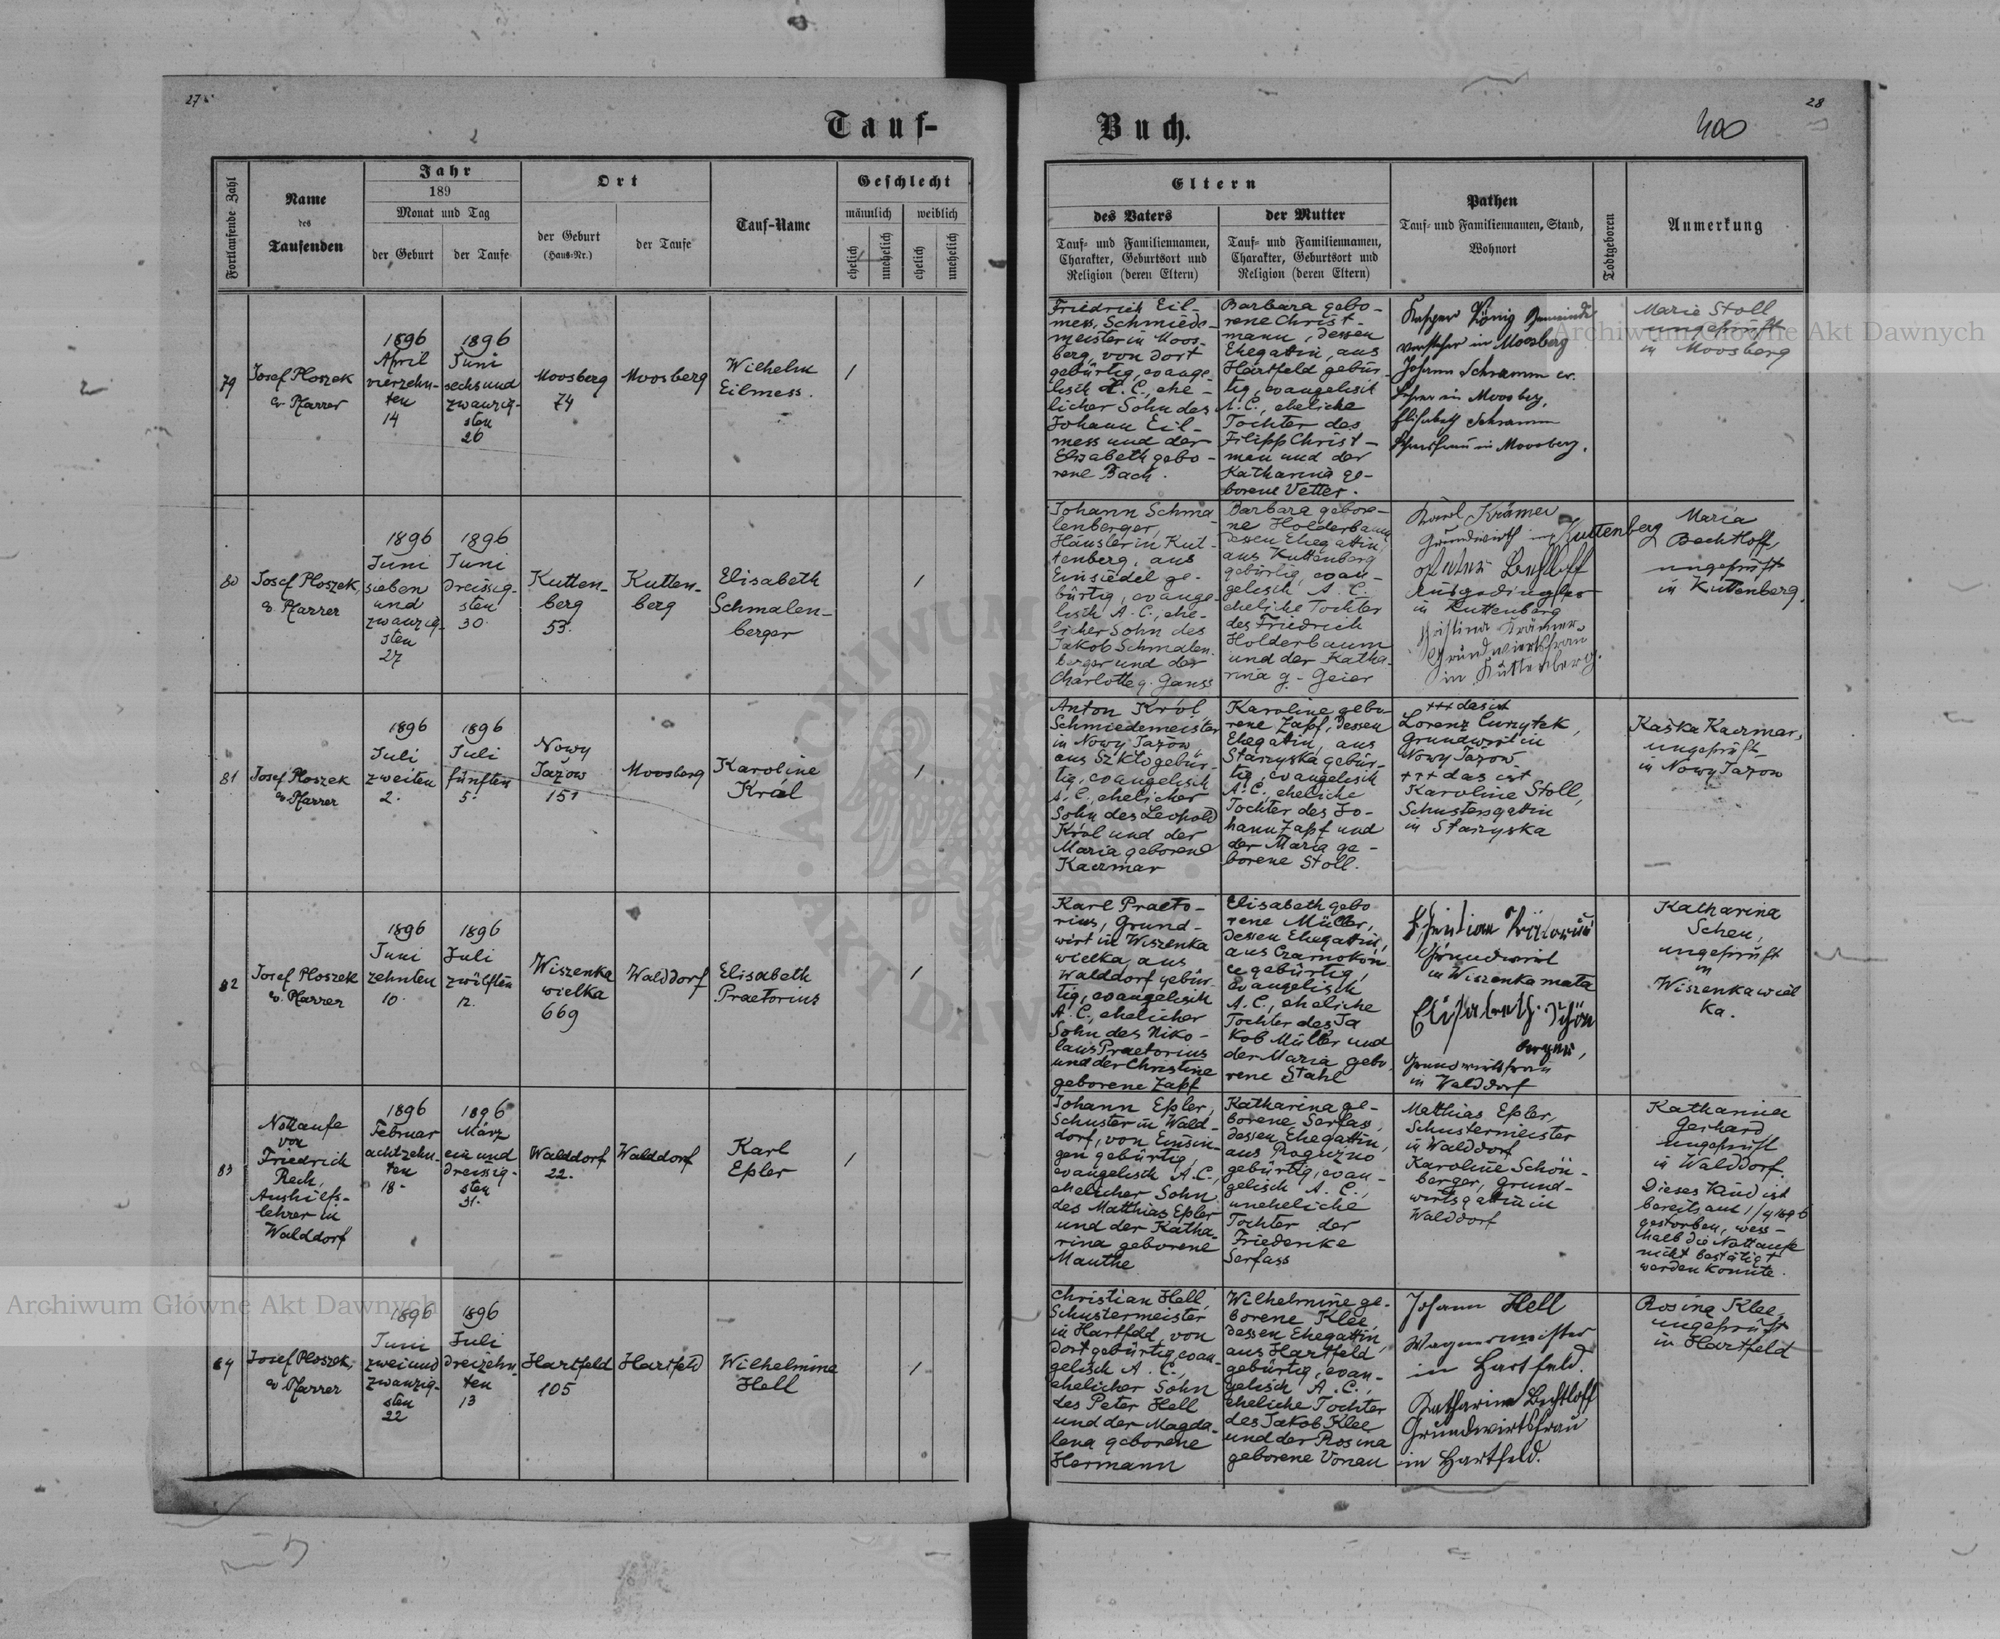 27
28
Tauf-
Buch.
400
Fortlaufende Zahl
Name
des
Taufenden
Jahr
189
Monat und Tag
der Geburt
der Taufe
Ort
der Geburt
(Haus-Nr.)
der Taufe
Tauf-Name
Geschlecht
männlich
weiblich
ehelich
unehelich
ehelich
unehelich
Eltern
des Vaters
Tauf- und Familiennamen,
Charakter, Geburtsort und
Religion (deren Eltern)
der Mutter
Tauf- und Familiennamen,
Charakter, Geburtsort und
Religion (deren Eltern)
Pathen
Tauf- und Familiennamen, Stand,
Wohnort
Todtgeboren
Anmerkung
79
Josef Ploszek
ev. Pfarrer
1896
April
vierzehn-
ten
14
1896
Juni
sechsund
zwanzig-
sten
26
Moosberg
74
Moosberg
Wilhelm
Eilmess.
1
Friedrich Eil-
mess, Schmiede-
meister in Moos-
berg, von dort
gebürtig, evange-
lisch A.C., ehe-
licher Sohn des
Johann Eil-
mess und der
Elisabeth gebo-
rene Bach.
Barbara gebo-
rene Christ-
mann, dessen
Ehegattin, aus
Hartfeld gebür-
tig, evangelisch
A.C., eheliche
Tochter des
Filipp Christ-
man und der
Katharina ge-
borene Vetter.
Kasper König Gemeinde
vorsteher in Moosberg
Johann Schramm ev.
Lehrer in Moosberg,
Elisabeth Schramm
in Moosberg.
Marie Stoll
ungeprüft
in Moosberg
80
Josef Ploszek,
ev. Pfarrer
1896
Juni
sieben
und
zwanzig-
sten
27
1896
Juni
dreissig-
sten
30.
Kutten-
berg
53.
Kutten-
berg
Elisabeth
Schmalen-
berger
1
Johann Schma-
lenberger,
Häusler in Kut-
tenberg, aus
Einsiedel ge-
bürtig, evange-
lisch A.C., ehe-
licher Sohn des
Jakob Schmalen-
berger und der
Charlotte g. Ganss
Barbara gebore-
ne Holderbaum
dessen Ehegattin,
aus Kuttenberg
gebürtig, evan-
gelisch A.C.
eheliche Tochter
des Friedrich
Holderbaum
und der Katha-
rina g. Geier
Karl Krämer
Grundwirth in Kuttenberg
Peter Bechtloff
Ausgedingler
in Kuttenberg
Christina Krämer
Grundwirtsfrau
in Kuttenberg.
Maria
Bechtloff,
ungeprüft
in Kuttenberg.
81
Josef Ploszek
ev. Pfarrer
1896
Juli
zweiten
2.
1896
Juli
fünften
5.
Nowy
Jazów
151
Moosberg
Karoline
Król
1
Anton Król,
Schmiedemeister
in Nowy Jazów,
aus Szkło gebür-
tig, evangelisch
A.C., ehelicher
Sohn des Leopold
Król und der
Maria geborene
Kaczmar
Karoline gebo-
rene Zapf, dessen
Ehegattin, aus
Starzyska gebür-
tig, evangelisch
A.C. eheliche
Tochter des Jo-
hann Zapf und
der Maria ge-
borene Stoll.
+++ das ist
Lorenz Curzytek,
Grundwirt in
Nowy Jazów
+++ das ist
Karoline Stoll,
Schustersgattin
in Starzyska
Kaśka Kaczmar,
ungeprüft
in Nowy Jazow
82
Josef Ploszek
ev. Pfarrer
1896
Juni
zehnten
10.
1896
Juli
zwölften
12.
Wiszenka
wielka
669
Walddorf
Elisabeth
Praetorius
1
Karl Praeto-
rius, Grund-
wirt in Wiszenka
wielka, aus
Walddorf gebür-
tig, evangelisch
A.C., ehelicher
Sohn des Niko-
laus Praetorius
und der Christine
geborene Zapf
Elisabeth gebo
rene Müller,
dessen Ehegattin,
aus Czarnokon
ce gebürtig,
Evangelisch
A.C., eheliche
Tochter des Ja
kob Müller und
der Maria gebo-
rene Stahl
Christian Prätorius
Grundwirt
in Wiszenka mala
Elisabeth Schön
berger,
Grundwirtsfrau
in Walddorf
Katharina
Scheu,
ungeprüft
in
Wiszenka wiel
ka.
83
Nottaufe
von
Friedrich
Rech,
Aushilfs-
lehrer in
Walddorf
1896
Februar
achtzehn-
ten
18.
1896
März
ein und
dreissig-
sten
31.
Walddorf
22.
Walddorf
Karl
Eßler
1
Johann Eßler,
Schuster in Wald-
dorf, von Einsin-
gen gebürtig,
evangelisch A.C.,
ehelicher Sohn
des Matthias Eßler
und der Katha-
rina geborene
Manthe
Katharina ge-
borene Serfass,
dessen Ehegattin,
aus Roguzno
gebürtig, evan-
gelisch A.C.,
uneheliche
Tochter der
Friederike
Serfass
Mathias Eßler,
Schustermeister
in Walddorf
Karoline Schön-
berger, Grund-
wirtsgattin in
Walddorf
Katharina
Gerhard
ungeprüft
in Walddorf.
Dieses Kind ist
bereits am 1/4 1896
gestorben, wess-
halb die Nottaufe
nicht bestätigt
werden konnte.
84
Josef Ploszek,
ev. Pfarrer
1896
Juni
zwei und
zwanzig-
sten
22
1896
Juli
dreizehn-
ten
13
Hartfeld
105
Hartfeld
Wilhelmine
Hell
1
Christian Hell,
Schustermeister
in Hartfeld, von
dort gebürtig, evan-
gelisch A.C.,
ehelicher Sohn
des Peter Hell
und der Magda-
lena geborene
Hermann
Wilhelmine ge-
borene Klee,
dessen Ehegattin,
aus Hartfeld
gebürtig, evan-
gelisch A.C.,
eheliche Tochter
des Jakob Klee
und der Rosina
geborene Vonau
Johann Hell
Wagnermeister
in Hartfeld.
Katharina Bechtloff
Grundwirtsfrau
in Hartfeld.
Rosina Klee,
ungeprüft
in Hartfeld
Archiwum Główne Akt Dawnych
Archiwum Główne Akt Dawnych
ARCHIWUM
AKT DAW